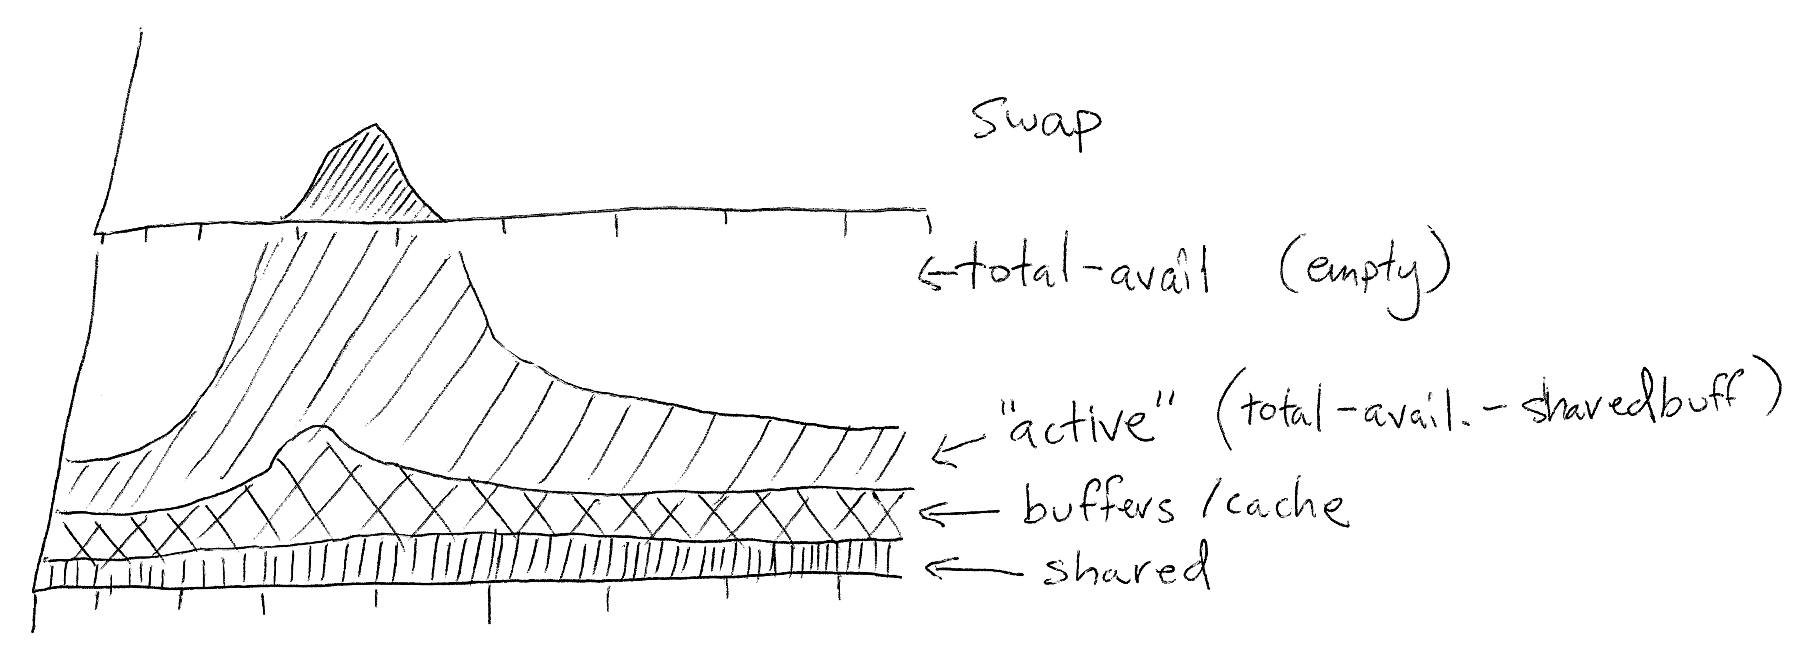 Swap
total-avail (empty)
"active" (total-avail.-sharedbuff)
buffers /cache
shared